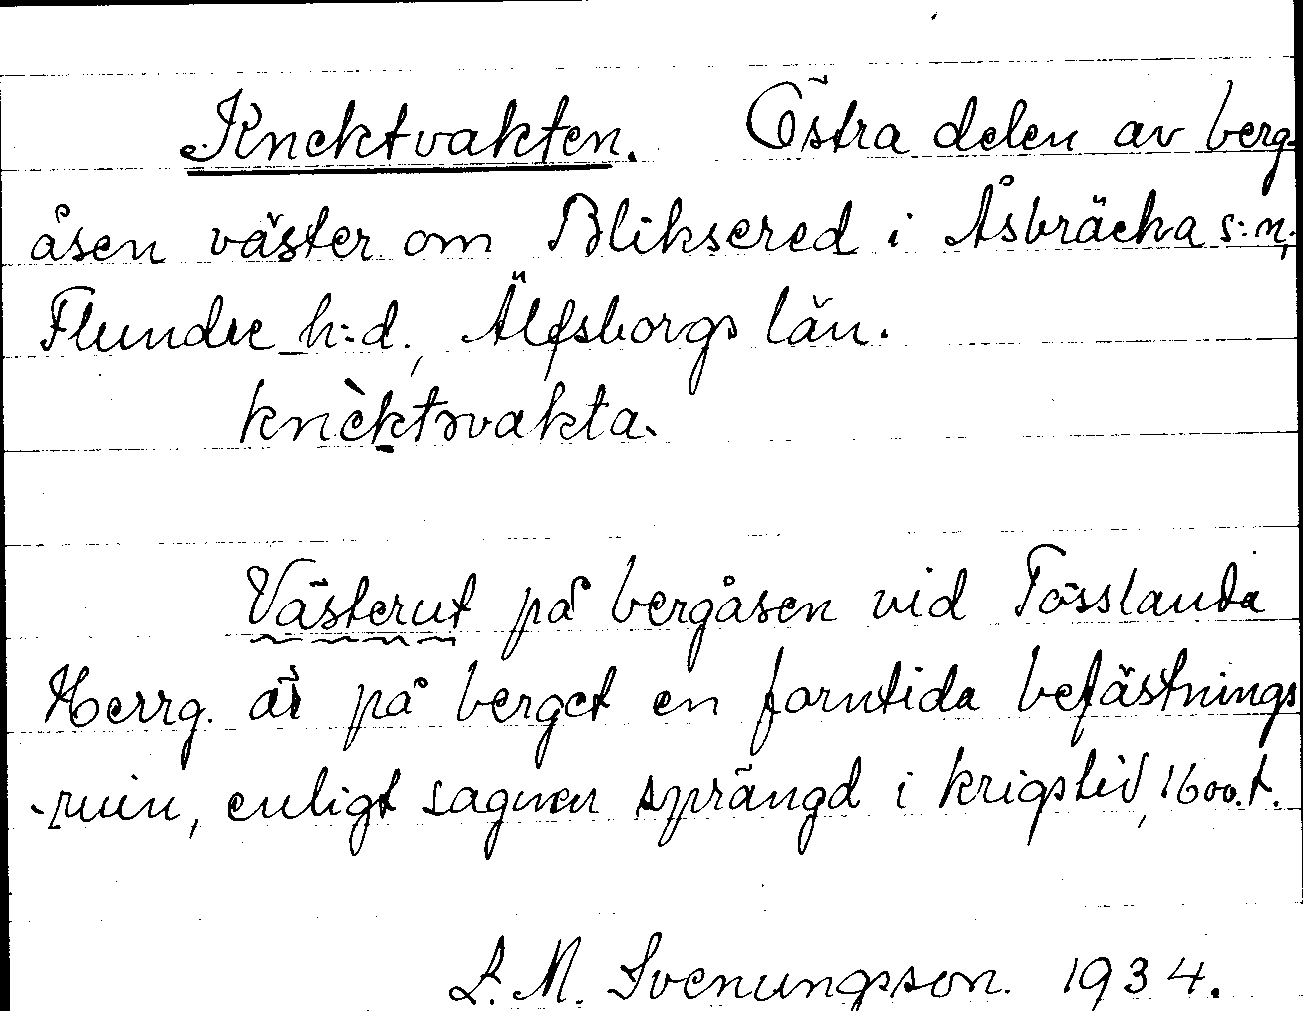 Knektvakten. Östra delen av berg-
åsen väster om Bliksered i Åsbräcka s:n,
Flundre h:d., Älfsborgs län.
knèktvakta.
Västerut på bergåsen vid Tösslanda
Herrg. är på berget en forntida befästnings
-ruin, enligt sagnen sprängd i krigstid, 1600.t.
L. M. Svenungsson. 1934.